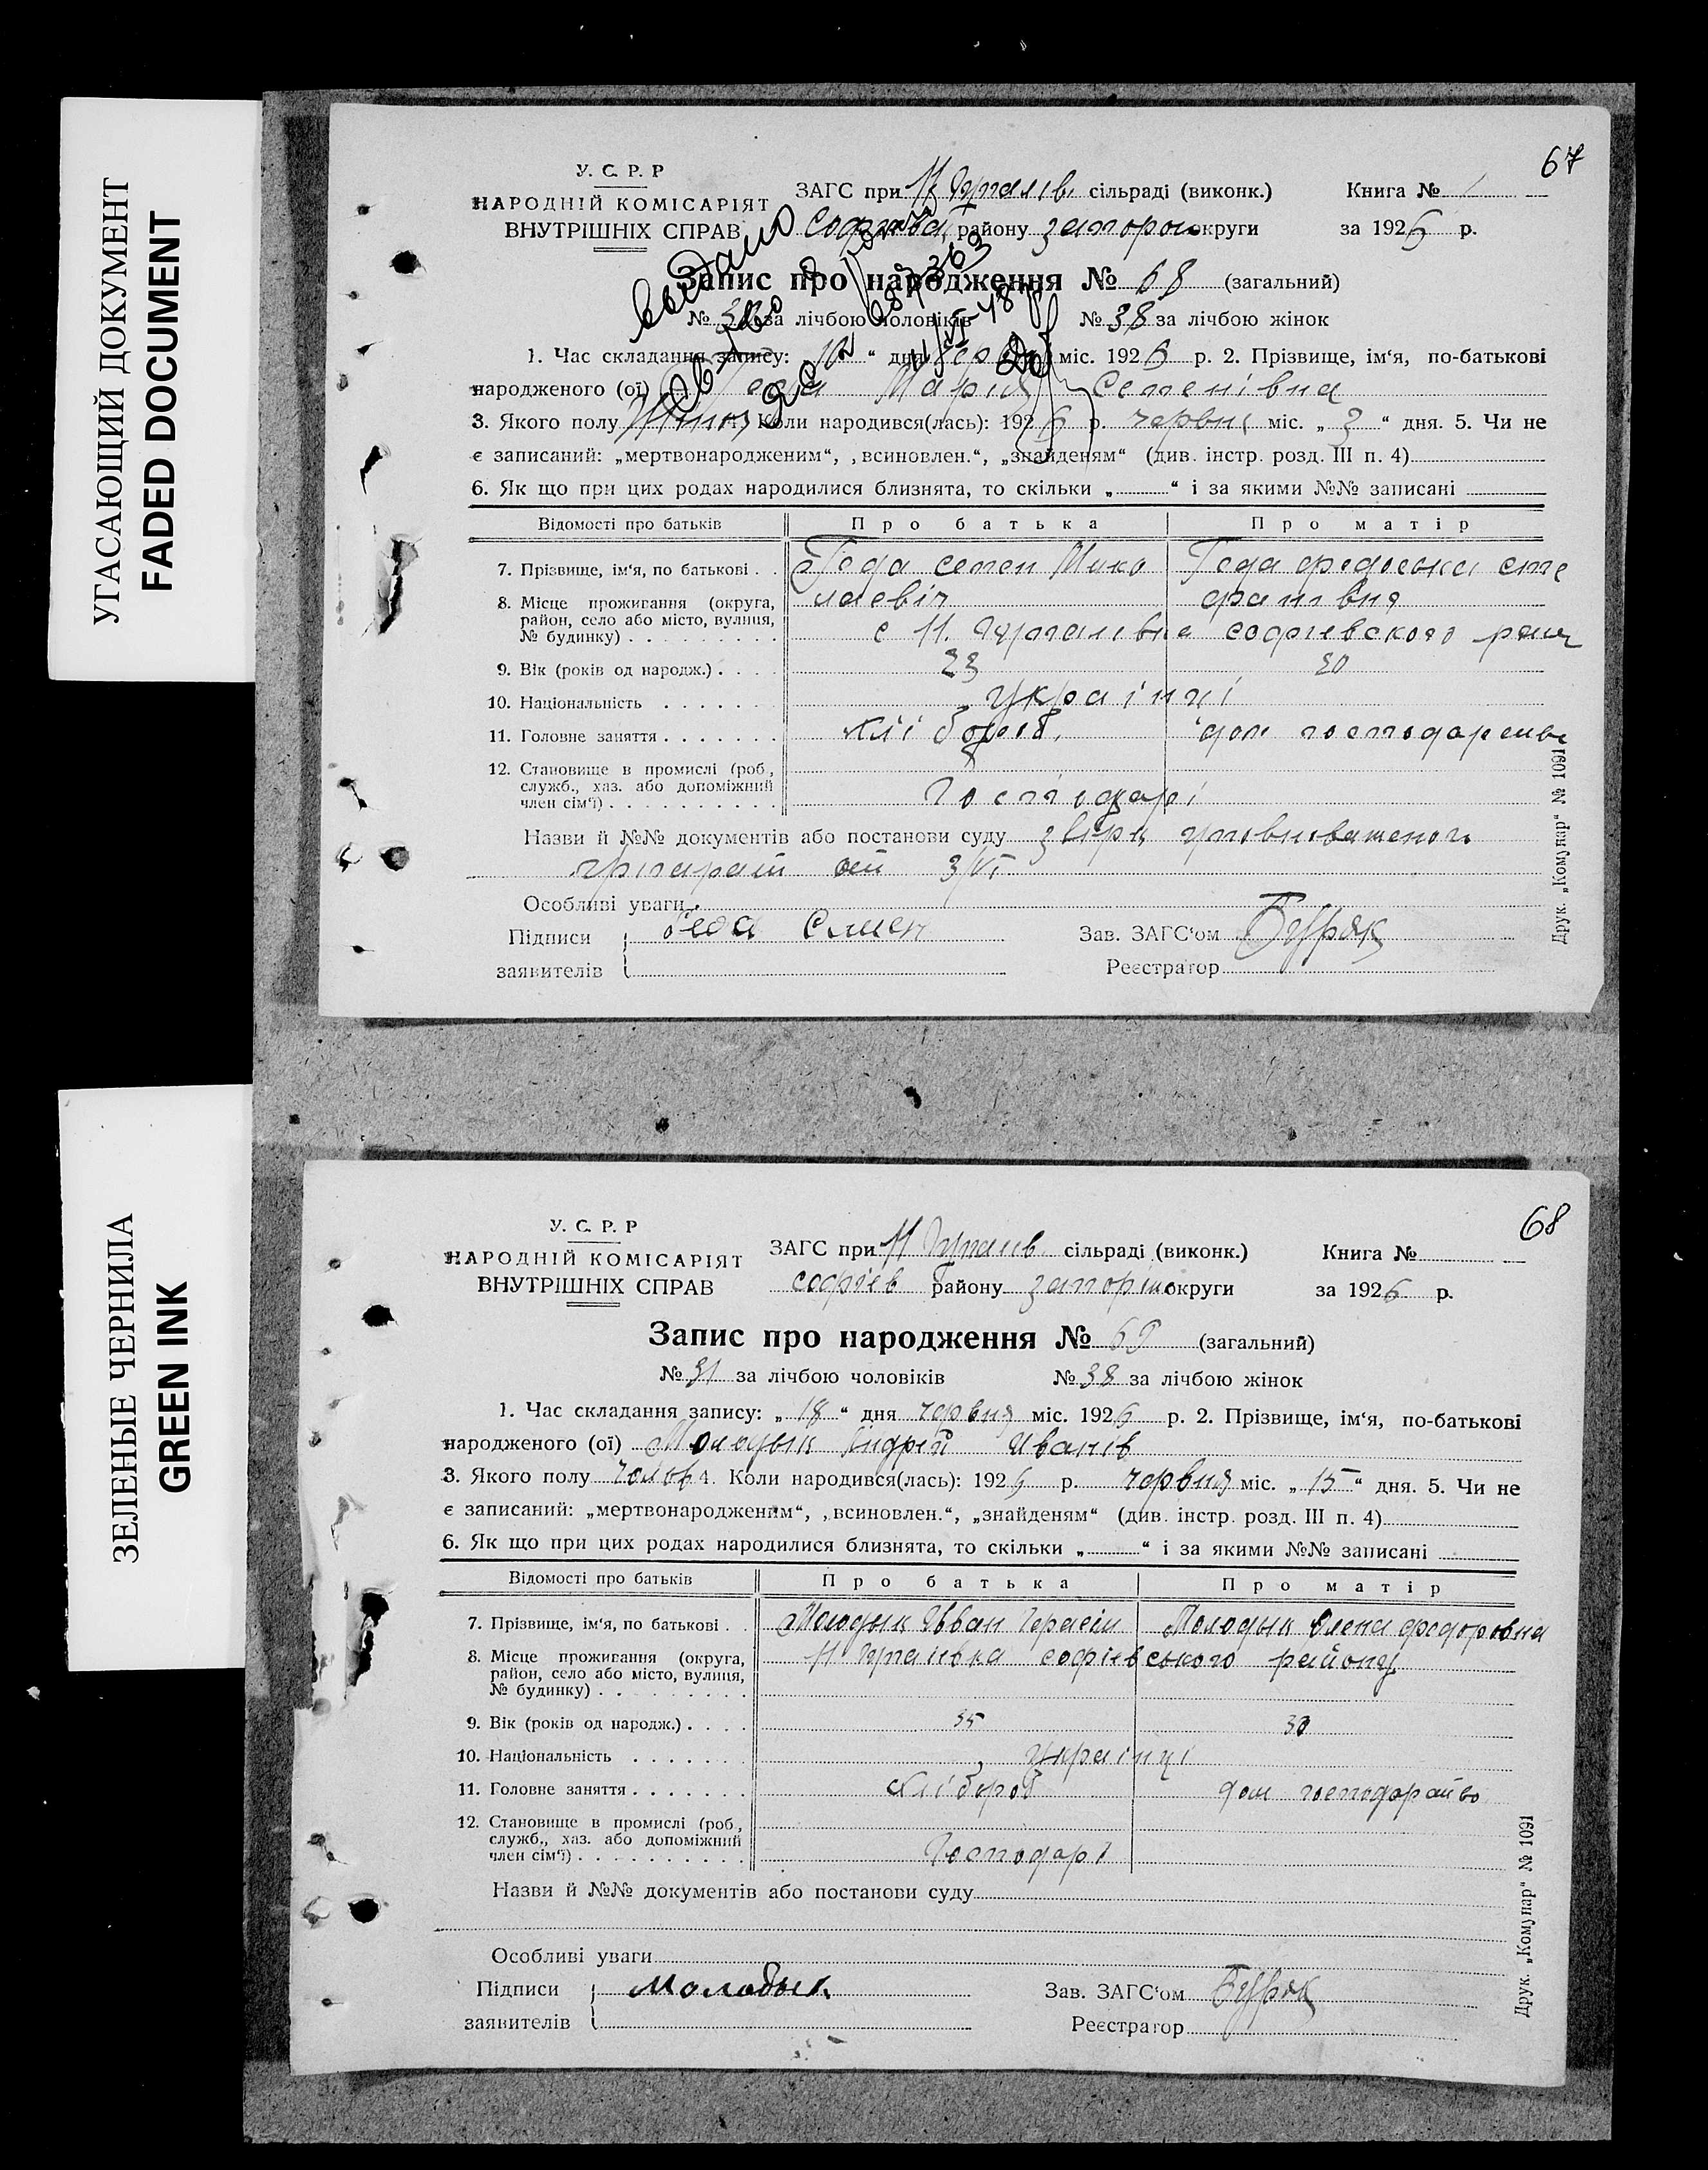 УГАСАЮЩИЙ ДОКУМЕНТ
FADED DOCUMENT
67
У. С. Р. Р
НАРОДНІЙ КОМІСАРІЯТ
ВНУТРІШНІХ СПРАВ
ЗАГС при сільраді (виконк.) Книга № 1
району округи за 1926 р.
Запис про народження № 68 (загальний)
№ за лічбою чоловіків № 38 за лічбою жінок
1. Час складання запису: „ “ дня міс. 1926 р. 2. Прізвище, ім‘я, по-батькові
народженого (ої) Геда Марія Семенівна
3. Якого полу 4. Коли народився(лась): 1926 р. червня міс. „ 3 “ дня. 5. Чи не
є записаний: „мертвонародженим“, „всиновлен.“, „знайденям“ (див. інстр. розд. III п. 4)
6. Як що при цих родах народилися близнята, то скільки „ “ і за якими №№ записані
Відомості про батьків Про батька Про матір
7. Прізвище, ім‘я, по батькові . . Геда Семен Мико Геда сте
8. Місце проживання (округа, район, село або місто, вулиця, № будинку) . . . . . . . . . лаевіч
с софіевского
9. Вік (років од народж.) . . . . 23 20
10. Національність . . . . . . . українці
11. Головне заняття . . . . . . . хлібороб. дом господарство
12. Становище в промислі (роб., служб., хаз. або допоміжний член сім‘ї) . . . . . . . . . . Господарі
Назви й №№ документів або постанови суду
3/VI
Особливі уваги
Підписи заявителів Геда Зав. ЗАГС‘ом Буряк
Реєстратор
Друк. „Комунар“ № 1091
ЗЕЛЕНЫЕ ЧЕРНИЛА
GREEN INK
68
У. С. Р. Р
НАРОДНІЙ КОМІСАРІЯТ
ВНУТРІШНІХ СПРАВ
ЗАГС при сільраді (виконк.) Книга №
софіев району округи за 1926 р.
Запис про народження № 69 (загальний)
№ 31 за лічбою чоловіків № 38 за лічбою жінок
1. Час складання запису: „ 18 “ дня червня міс. 1926 р. 2. Прізвище, ім‘я, по-батькові
народженого (ої) Молодык Андрей Иванів
3. Якого полу чолов 4. Коли народився(лась): 1926 р. червня міс. „ 15 “ дня. 5. Чи не
є записаний: „мертвонародженим“, „всиновлен.“, „знайденям“ (див. інстр. розд. III п. 4)
6. Як що при цих родах народилися близнята, то скільки „ “ і за якими №№ записані
Відомості про батьків Про батька Про матір
7. Прізвище, ім‘я, по батькові . . Молодык Иван Герасім Молодык Олена федоровна
8. Місце проживання (округа, район, село або місто, вулиця, № будинку) . . . . . . . . . софієвського району
9. Вік (років од народж.) . . . . 35 30
10. Національність . . . . . . . українці
11. Головне заняття . . . . . . . хлібороб дом господарство
12. Становище в промислі (роб., служб., хаз. або допоміжний член сім‘ї) . . . . . . . . . . Господарі
Назви й №№ документів або постанови суду
Особливі уваги
Підписи заявителів Молодык Зав. ЗАГС‘ом Буряк
Реєстратор
Друк. „Комунар“ № 1091